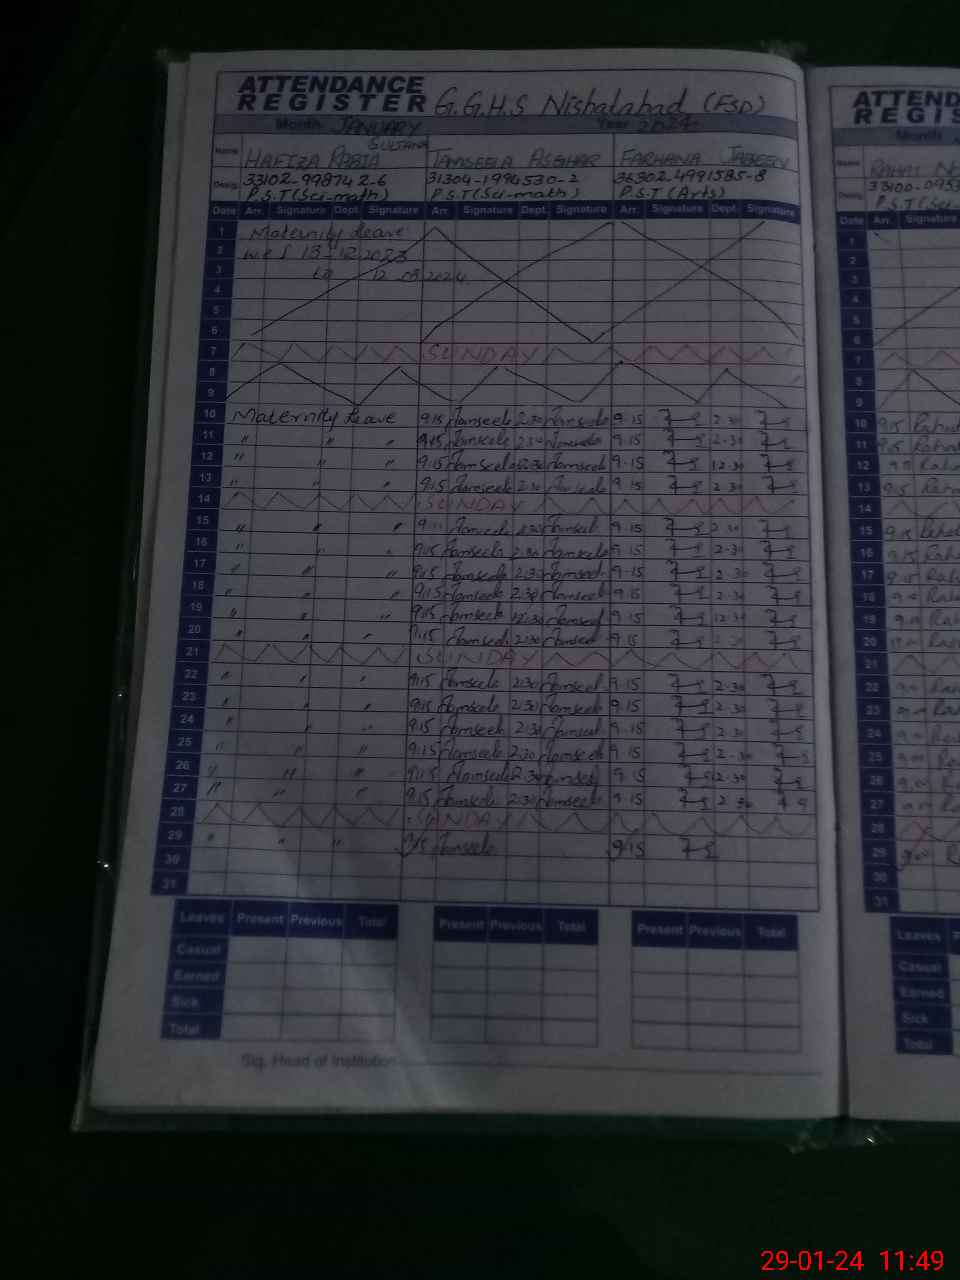 ATTENDANCE
REGISTER G.G.H.S Nishatabad (FSD)
Month JANUARY Year 2024
Name HAFIZA RABIA SULTANA TAMSEELA ASGHAR FARHANA JABEEN
Desig. 33102-9987442-6 31304-1994530-2 36302-4991585-8
P.S.T (Sci-math) P.S.T (Sci-math) P.S.T (Arts)
Date Arr. Signature Dept. Signature Arr. Signature Dept. Signature Arr. Signature Dept. Signature
1 Maternity Leave
2 w.e.f 13-12-2023
3 to 12 03 2024
4
5
6
7 SUNDAY
8
9
10 Maternity Leave 9.15 Tamseela 2.30 Tamseela 9.15 2.30
11 " " " 9.15 Tamseela 2.30 Tamseela 9.15 2.30
12 " " " 9.15 Tamseela 12.30 Tamseela 9.15 12.30
13 " " " 9.15 Tamseela 2.30 Tamseela 9.15 2.30
14 SUNDAY
15 " " " Tamseela 2.30 Tamseela 9.15 2.30
16 " " " 9.15 Tamseela 2.30 Tamseela 9.15 2.30
17 " " " 9.15 Tamseela 2.30 Tamseela 9.15 2.30
18 " " " 9.15 Tamseela 2.30 Tamseela 9.15 2.30
19 " " " 9.15 Tamseela 12.30 Tamseela 9.15 12.30
20 " " " 9.15 Tamseela 2.30 Tamseela 9.15
21 SUNDAY
22 " " " 9.15 Tamseela 2.30 Tamseela 9.15 2.30
23 " " " 9.15 Tamseela 2.30 Tamseela 9.15 2.30
24 " " " 9.15 Tamseela 2.30 Tamseela 9.15 2.30
25 " " " 9.15 Tamseela 2.30 Tamseela 9.15 2.30
26 " " " 9.15 Tamseela 2.30 Tamseela 9.15 2.30
27 " " " 9.15 Tamseela 2.30 Tamseela 9.15 2.30
28 SUNDAY
29 " " " 9.15 Tamseela 9.15
30
31
Leaves Present Previous Total Present Previous Total Present Previous Total
Casual
Earned
Sick
Total
Sig. Head of Institution
ATTEND
REGIS
Month
Name RAHAT
Desig.
Date Arr. Signature
1
2
3
4
5
6
7
8
9
10 9.15
11 9.15
12
13 9.15
14
15 9.15
16 9.15
17 9.15
18 9.00
19 9.00
20 9.00
21
22 9.00
23
24 9.00
25 9.00
26 9.00
27
28
29 9.00
30
31
Leaves
Casual
Earned
Sick
Total
29-01-24 11:49